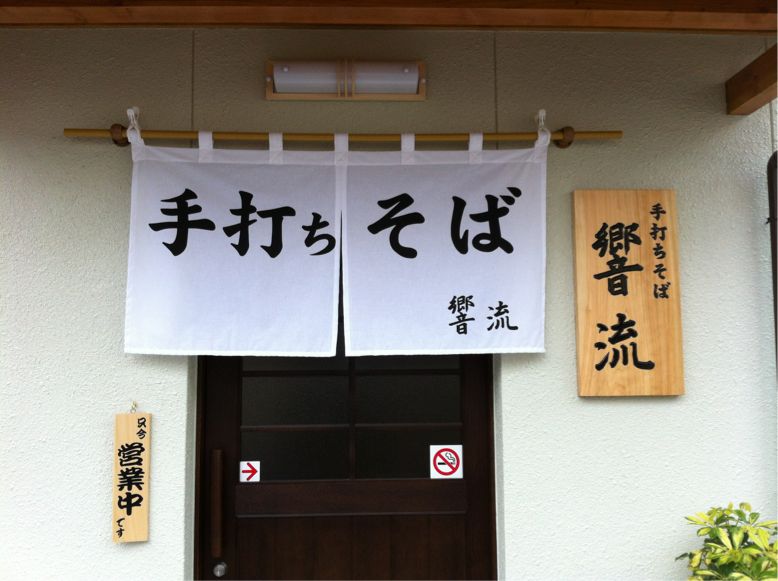 手打ちそば
響流
手打ちそば
響流
只今
営業中
です